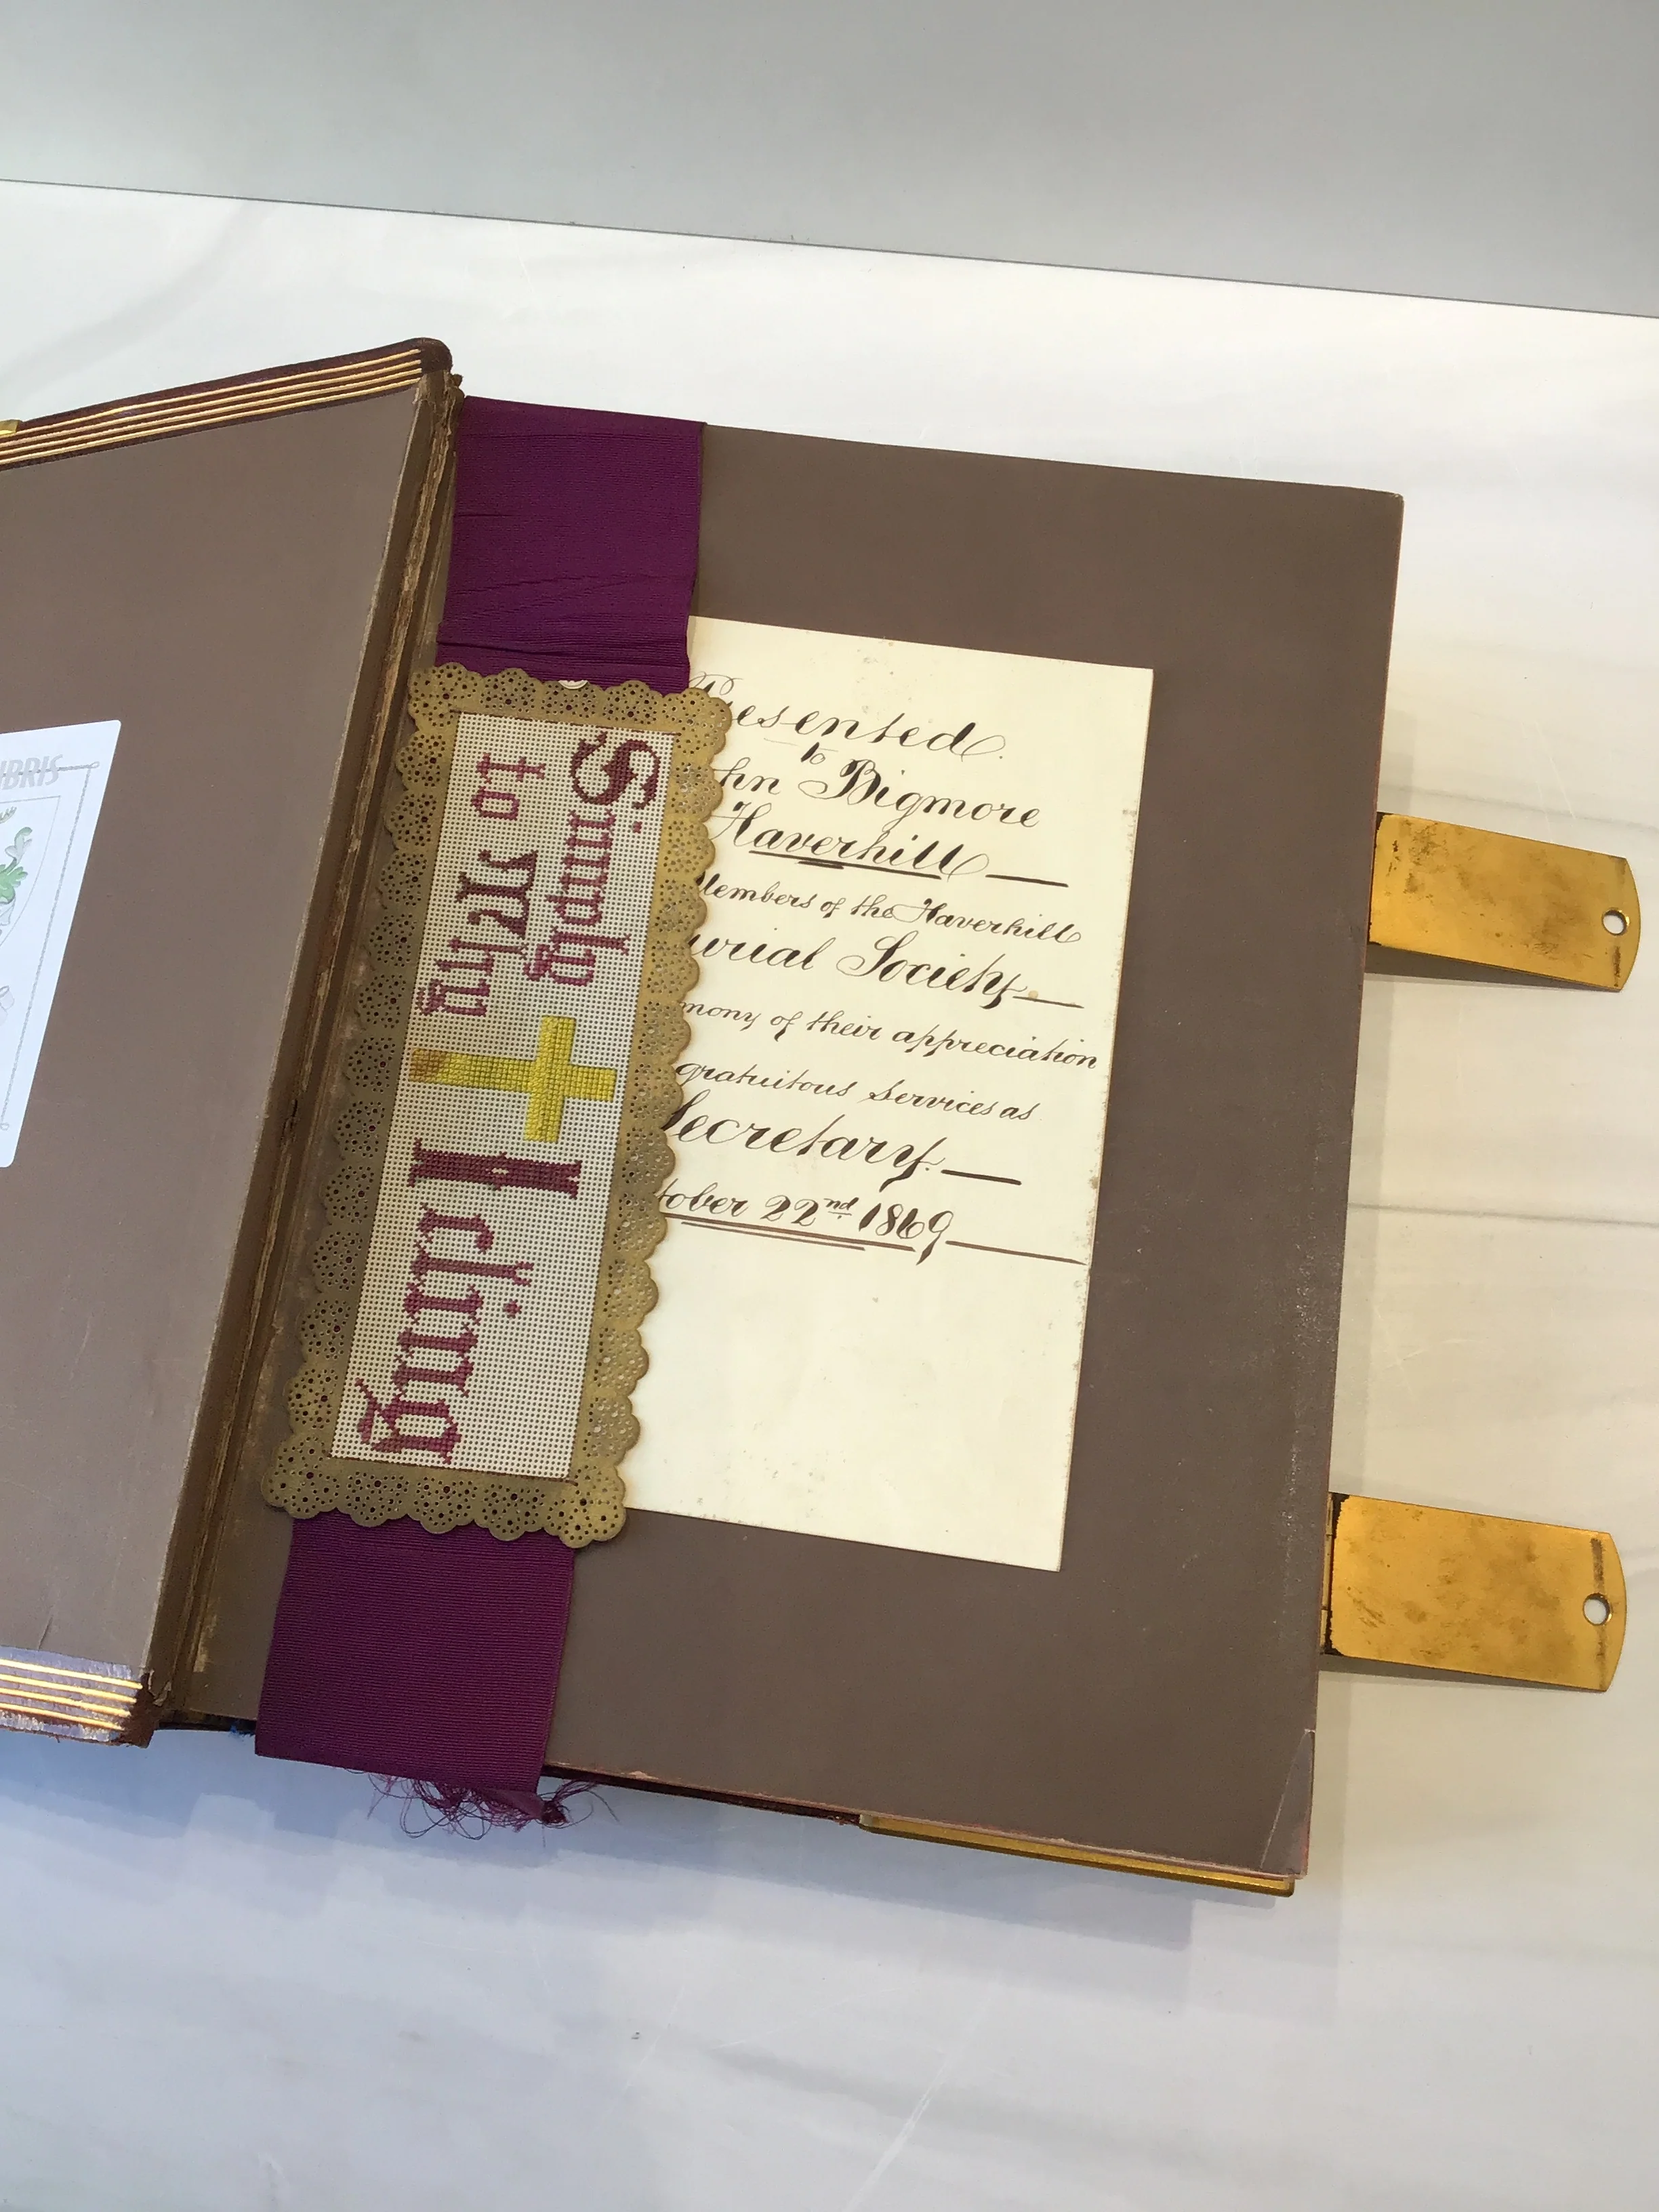 IBRIS
Simply
to Thy
I cling
resented
to
hn Bigmore
Haverhill
Members of the Haverhill
urial Society
mony of their appreciation
gratuitous Services as
Secretary.
tober 22nd 1869